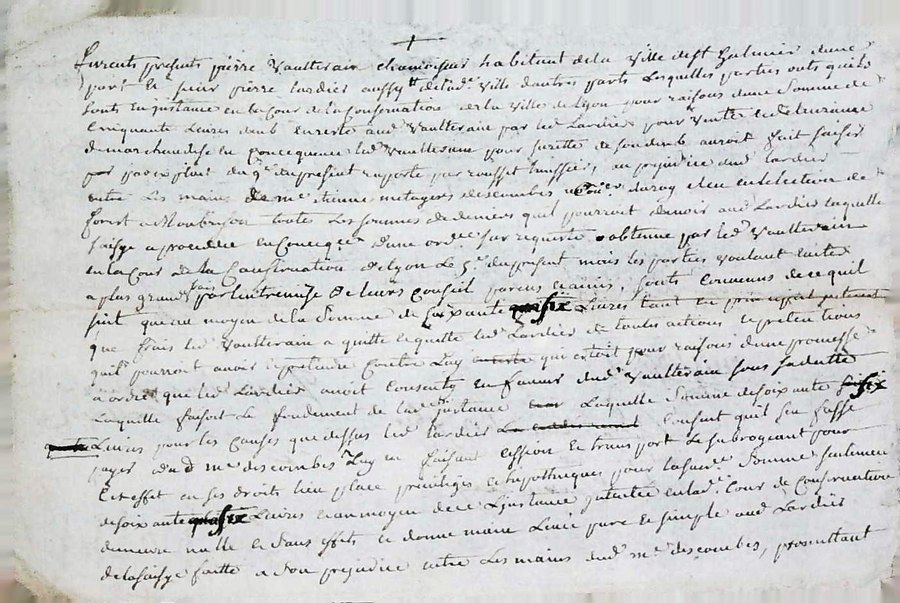 furents presents pierre Vaulterain chamoiseur habitant de la Ville de St Galmier d'une
part Et sieur pierre Lardier aussy de lad.e Ville d'autres parts Lesquelles parties onts
sonts En instance en la Cour de la Conservation de la Ville de Lyon pour raisons d'une somme de
Cinquante Livres aud Vaulterain par led Lardier pour Vente
de marchandise En Concequence led Vaulterain pour auroit fait saisir
par du 9.e du present par rousset huissier, au prejudice dud Lardier
entre Les mains de m.e etienne descombes du roy en L'election de
forest a Montbrison toutes Les sommes de deniers quil pourroit devoir aud Lardier laquelle
saisye a procedée En Conceq.ce d'une ord.ce sur requeste obtenue par led Vaulterain
en la Cour de la Conservation de Lyon Le 5.e du present mois les parties voulant Eviter
a plus grand frais par L'entremise de Leurs Conseil parens Et amis, sonts Convenus de ce quil
suit que au moyen de la somme de soixante six Livres tant En principal
que frais led Vaulterain a quitte Et quitte led Lardier de toutes actions Et pretentions
quil pourroit avoir a pretendre Contre Luy qui estoit pour raisons d'une promesse
a ordre que led Lardier avoit Consenty En faveur dud Vaulterain sous sa datte
Laquelle faisoit Le fondement de lad.e instance Laquelle somme de soixante six
Livres pour les Causes que dessus led Lardier Consent quil s'en fasse
payer dud m.e descombes Luy en faisant Cession Et transport Le subrogeant pour
Cest effet en ses droits lieu place privileges Et hypotheques, pour lad somme seulement
de soixante six Livres Et au moyen de ce L'instance intentée en lad.e Cour de Conservation
demeure nulle Et sans effets Et donne main Levée pure Et simple aud Lardier
de la saisye faitte a son prejudice entre Les mains dud m.e descombes, promettant